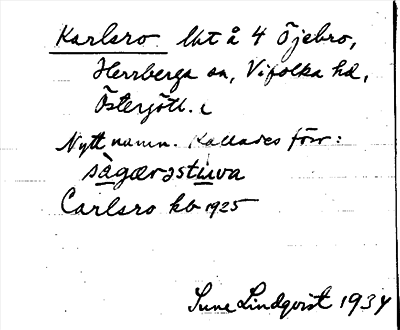 Karlsro lht å 4 Öjebro,
Herrberga sn, Vifolka hd,
Östergötl. l
Nytt namn. Kallades förr:
sàgærəstuva
Carlsro kb 1925
Sune Lindqvist 1934